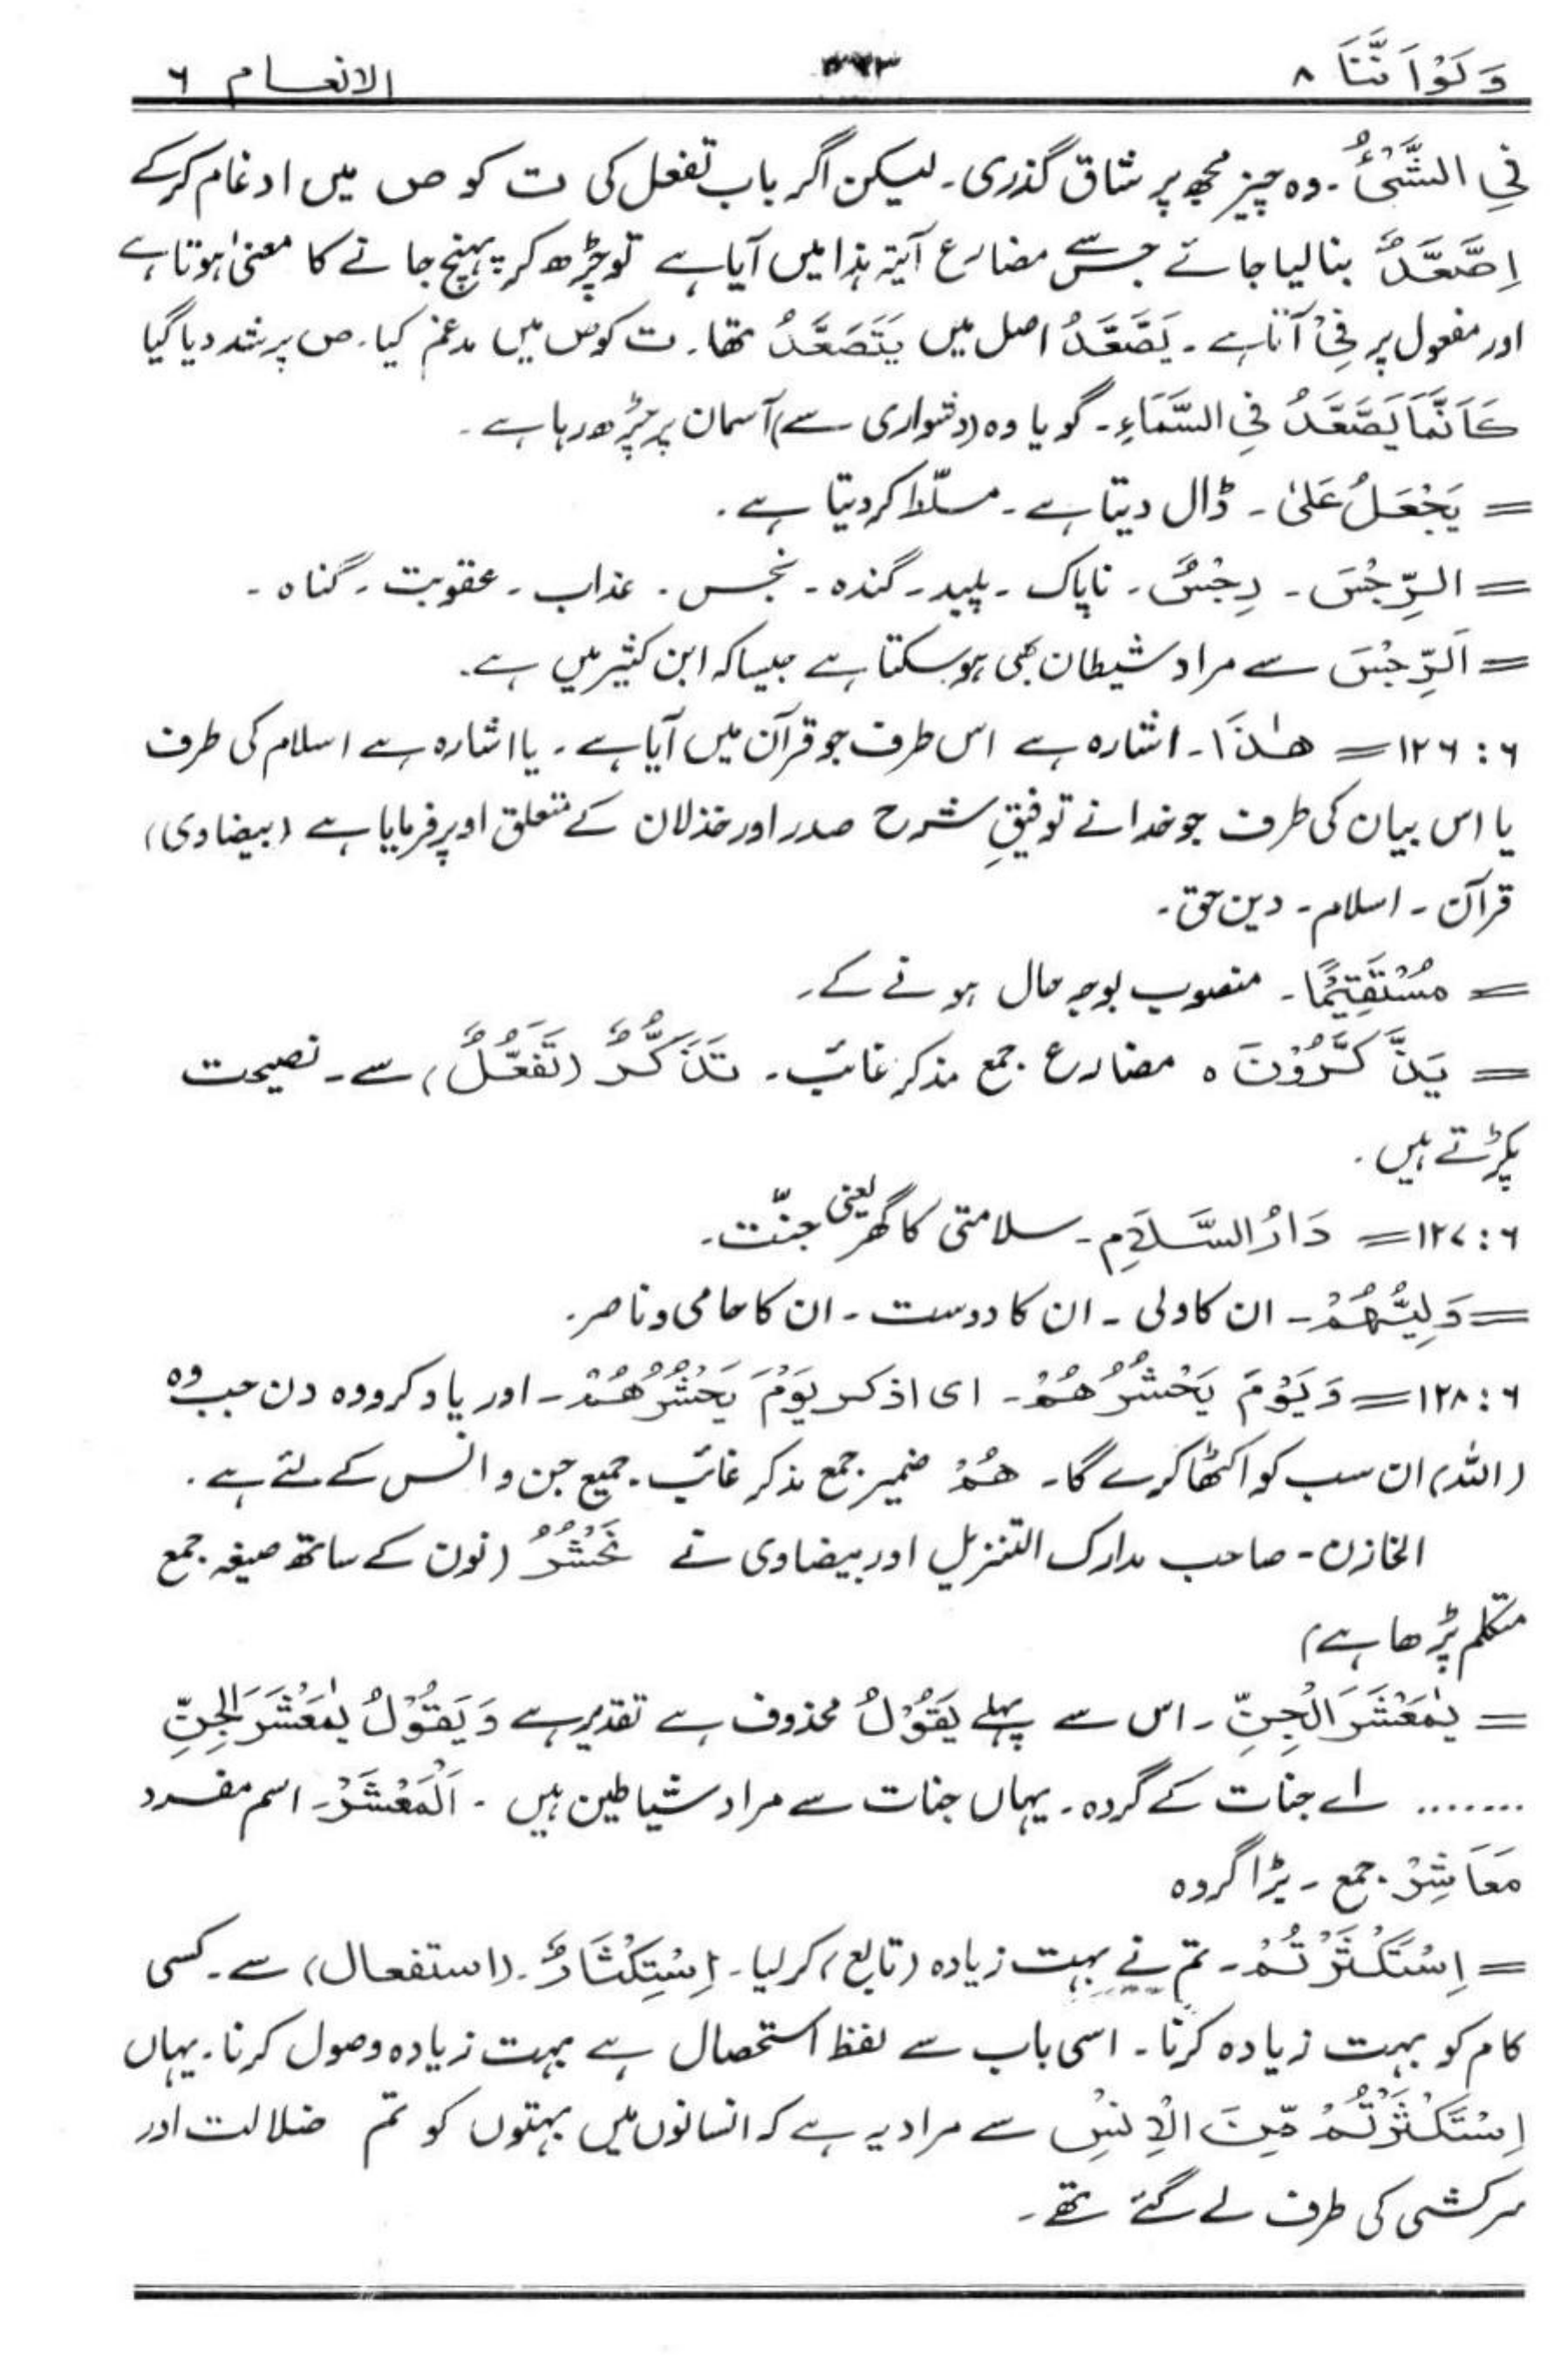 وَلَوْاَنَّنَا ۸ ۳۷۳ الانعام ۶
فِی الشَّیْءُ۔ وہ چیز مجھ پر شاق گذری۔ لیکن اگر باب تفعل کی ت کو ص میں ادغام کرکے
اِصَّعَّدَ بنا لیا جائے جس سے مضارع آیۃ ہذا میں آیا ہے تو چڑھ کر پہنچ جانے کا معنیٰ ہوتا ہے
اور مفعول پر فِیْ آتا ہے۔ یَصَّعَّدُ اصل میں یَتَصَعَّدُ تھا۔ ت کو ص میں مدغم کیا۔ ص پر شد دیا گیا
کَاَنَّمَا یَصَّعَّدُ فِی السَّمَاءِ۔ گویا وہ (دشواری سے) آسمان پر چڑھ رہا ہے۔
= یَجْعَلُ عَلیٰ۔ ڈال دیتا ہے۔ مسلّط کر دیتا ہے۔
= الرِّجْسَ۔ رِجْسٌ۔ ناپاک۔ پلید۔ گندہ۔ نجس۔ عذاب۔ عقوبت۔ گناہ۔
= اَلرِّجْسَ سے مراد شیطان بھی ہو سکتا ہے جیسا کہ ابن کثیر میں ہے۔
۶ : ۱۲۶ = ھٰذَا۔ اشارہ ہے اس طرف جو قرآن میں آیا ہے۔ یا اشارہ ہے اسلام کی طرف
یا اس بیان کی طرف جو خدا نے توفیقِ شرح صدر اور خذلان کے متعلق اوپر فرمایا ہے (بیضاوی)
قرآن۔ اسلام۔ دین حق۔
= مُسْتَقِیْمًا۔ منصوب بوجہ حال ہونے کے۔
= یَذَّکَّرُوْنَ ہ مضارع جمع مذکر غائب۔ تَذَکُّرٌ (تَفَعُّلٌ) سے۔ نصیحت
پکڑتے ہیں۔
۶ : ۱۲۷ = دَارُ السَّلَامِ۔ سلامتی کا گھر یعنی جنّت۔
= وَلِیُّھُمْ۔ ان کا ولی۔ ان کا دوست۔ ان کا حامی و ناصر۔
۶ : ۱۲۸ = وَیَوْمَ یَحْشُرُھُمْ۔ ای اذکر یَوْمَ یَحْشُرُھُمْ۔ اور یاد کرو وہ دن جب وہ
(اللہ) ان سب کو اکٹھا کرے گا۔ ھُمْ ضمیر جمع مذکر غائب۔ جمیع جن و انس کے لئے ہے۔
الخازن۔ صاحب مدارک التنزیل اور بیضاوی نے نَحْشُرُ (نون کے ساتھ صیغہ جمع
متکلم پڑھا ہے)
= یٰمَعْشَرَ الْجِنِّ۔ اس سے پہلے یَقُوْلُ محذوف ہے تقدیر ہے وَیَقُوْلُ یٰمَعْشَرَ الْجِنِّ
....... اے جنات کے گروہ۔ یہاں جنات سے مراد شیاطین ہیں۔ اَلْمَعْشَرُ۔ اسم مفرد
مَعَاشِرُ جمع۔ بڑا گروہ
= اِسْتَکْثَرْتُمْ۔ تم نے بہت زیادہ (تابع) کر لیا۔ اِسْتِکْثَارٌ۔ (استفعال) سے۔ کسی
کام کو بہت زیادہ کرنا۔ اسی باب سے لفظ استحصال ہے بہت زیادہ وصول کرنا۔ یہاں
اِسْتَکْثَرْتُمْ مِّنَ الْاِنْسِ سے مراد یہ ہے کہ انسانوں میں بہتوں کو تم ضلالت اور
سرکشی کی طرف لے گئے تھے۔